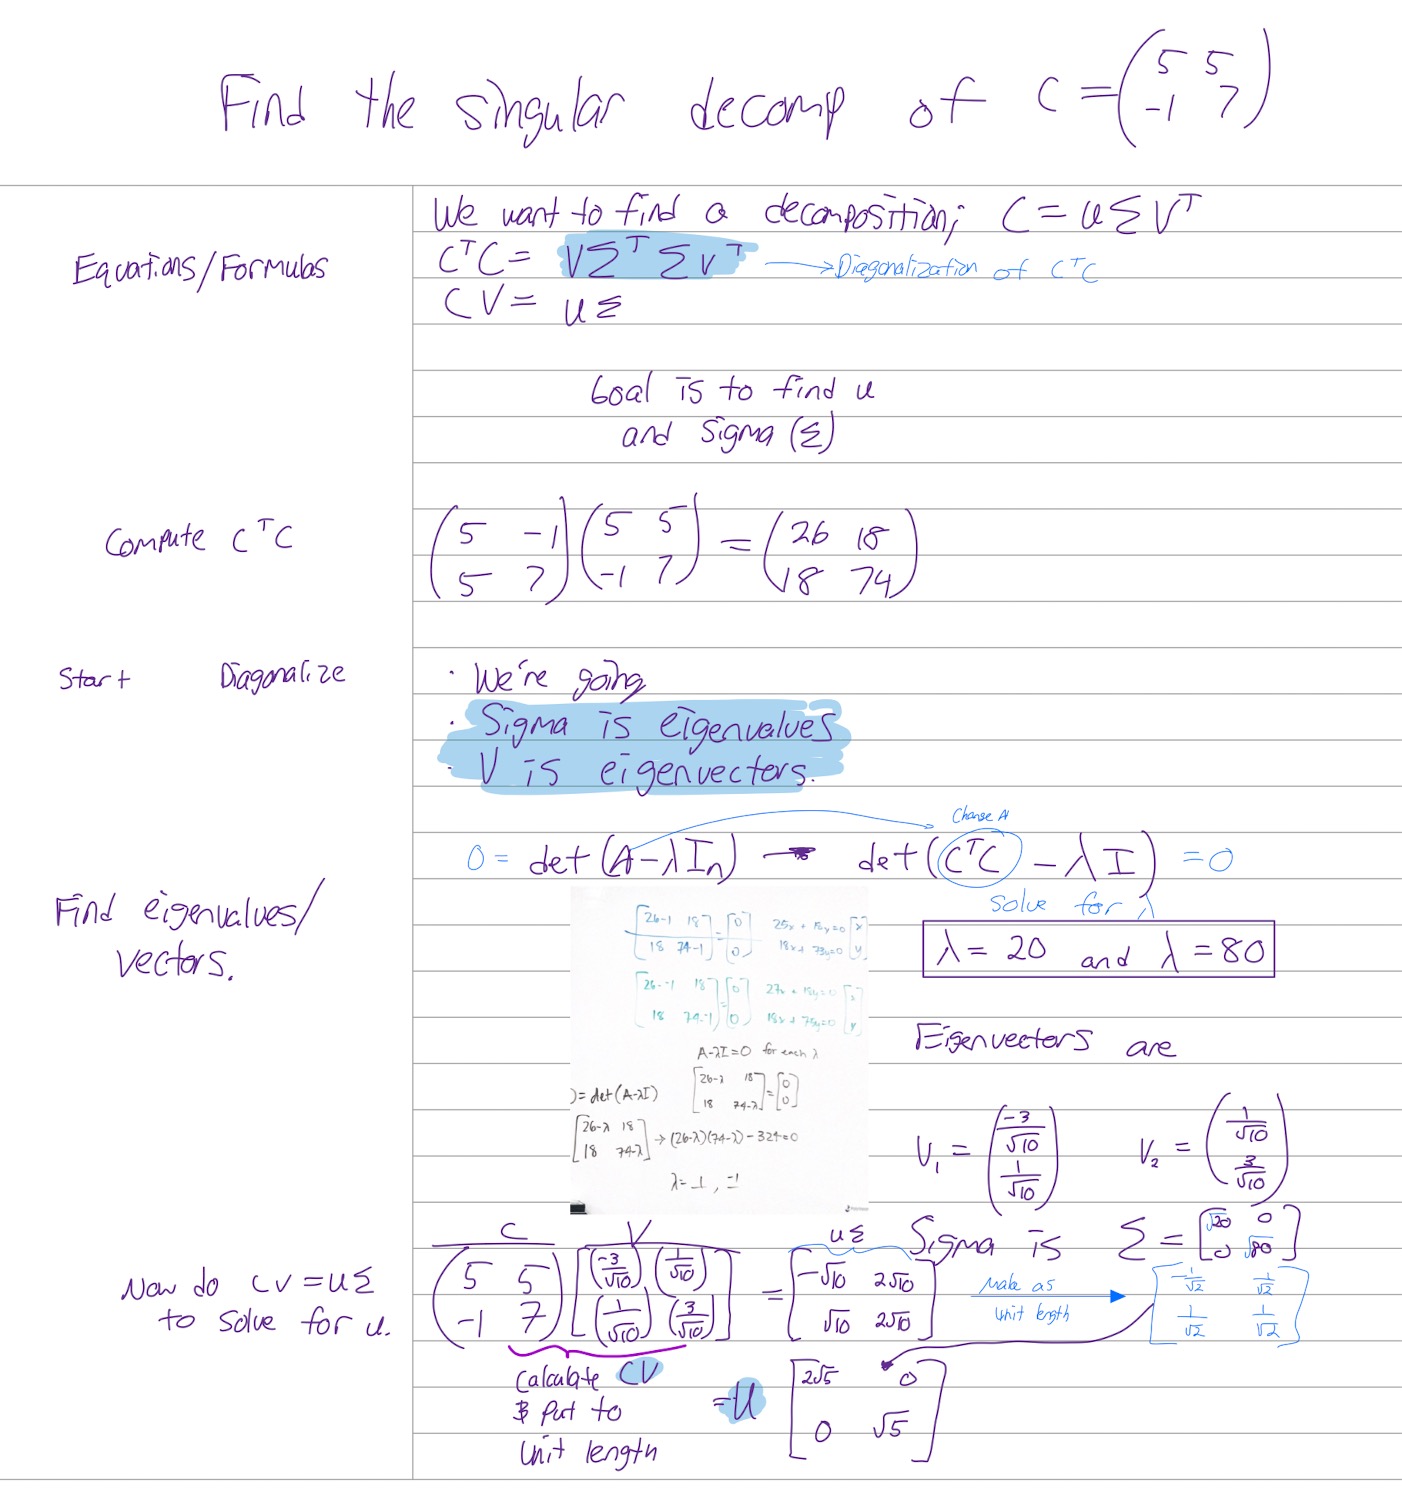 Find the singular decomp of C = (5 5 -1 7)
We want to find a decomposition; C = u Σ V^T
Equations/Formulas
C^T C = V Σ^T Σ V^T → Diagonalization of C^T C
C V = u Σ
Goal is to find u
and Sigma (Σ)
Compute C^T C
(5 -1 5 7) (5 5 -1 7) = (26 18 18 74)
Start Diagonalize
· We're going
· Sigma is eigenvalues
· V is eigenvectors.
Change A
0 = det (A - λ I_n) → det (C^T C - λ I) = 0
solve for λ
Find eigenvalues/
vectors.
λ = 20 and λ = 80
[26-1 18 18 74-1] = [0 0] 25x + 18y = 0 18x + 73y = 0 [x y]
[26--1 18 18 74-1] = [0 0] 27x + 18y = 0 18x + 75y = 0 [x y]
A-λI = 0 for each λ
[26-λ 18 18 74-λ] = [0 0]
) = det (A-λI)
[26-λ 18 18 74-λ] → (26-λ)(74-λ) - 324 = 0
λ = 1, -1
Eigenvectors are
V_1 = (-3/√10 1/√10) V_2 = (1/√10 3/√10)
Sigma is Σ = [√20 0 0 √80]
C V uΣ
Now do CV = uΣ
to solve for u.
(5 5 -1 7) [(-3/√10) (1/√10) (1/√10) (3/√10)] = [-√10 2√10 √10 2√10] Make as unit length → [-1/√2 1/√2 1/√2 1/√2]
Calculate CV
& Put to
unit length
= U [2√5 0 0 √5]